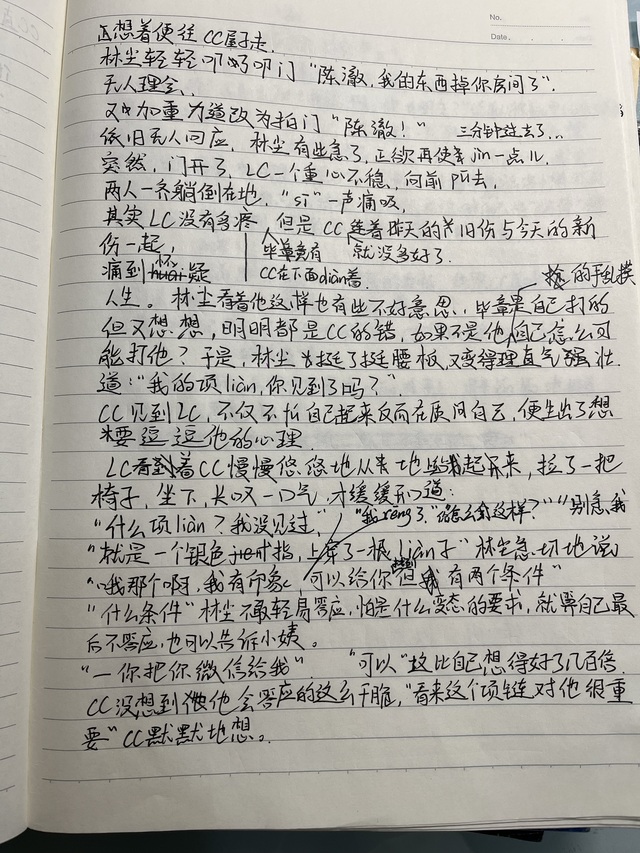 No.
Date.
正想着便往CC屋子走.
林尘轻轻叩叩门“陈澈,我的东西掉你房间了”.
无人理会、
又加重力道改为拍门“陈澈!” 三分钟过去了...
依旧无人回应, 林尘有些急了,正欲再使jìn一点儿,
突然,门开了,LC一个重心不稳,向前pū去,
两人一齐躺倒在地,“sī”一声痛呼,
其实LC没有多疼 但是CC 连着昨天的旧伤与今天的新
伤一起, 毕竟有 就没多好了.
痛到怀疑 CC在下面diàn着. 的手乱摸
人生。林尘看着他这样也有些不好意思,毕竟是自己打的
但又想想,明明都是CC的错,如果不是他自己怎么可
能打他?于是,林尘挺了挺腰板,又变得理直气强壮
道:“我的项liàn,你见到了吗?”
CC见到LC,不仅不怕自己起来反而在质问自己,便生出了想
要逗逗他的心理.
LC看着CC慢慢悠悠地从地起来,拉了一把
椅子,坐下,长叹一口气,才缓缓开道:
“什么项liàn?我没见过,” “我rēng了?”“怎么这样?”“别急,我
“就是一个银色jiè指,上穿了一根liàn子”林尘急切地说
“哦那个啊,我有印象,可以给你但我有两个条件”
“什么条件”林尘不敢轻易答应,怕是什么变态的要求,就算自己最
后不答应,也可以告诉小姨。
“一你把你微信给我” “可以”这比自己想得好了几百倍.
CC没想到他会答应的这么干脆,“看来这个项链对他很重
要”CC默默地想。